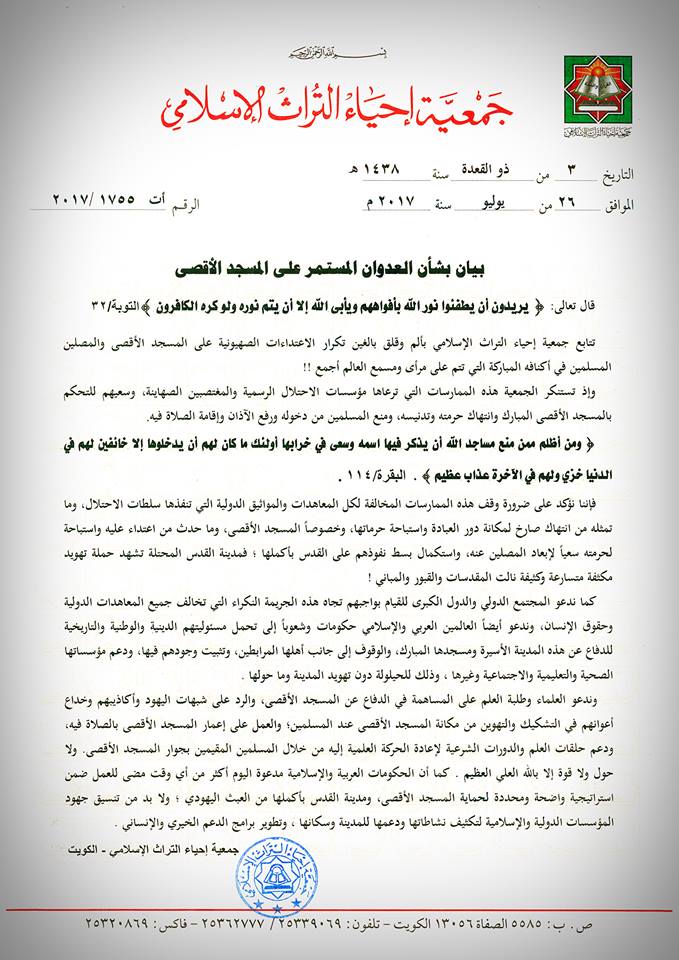 بسم الله الرحمن الرحيم
جمعية إحياء التراث الإسلامي
جمعية إحياء التراث الإسلامي
التاريخ ٣ من ذو القعدة سنة ١٤٣٨ هـ
الموافق ٢٦ من يوليو سنة ٢٠١٧ م الرقم أت ١٧٥٥ /٢٠١٧
بيان بشأن العدوان المستمر على المسجد الأقصى
قال تعالى: ﴿ يريدون أن يطفئوا نور الله بأفواههم ويأبى الله إلا أن يتم نوره ولو كره الكافرون ﴾التوبة/٣٢
تتابع جمعية إحياء التراث الإسلامي بألم وقلق بالغين تكرار الاعتداءات الصهيونية على المسجد الأقصى والمصلين
المسلمين في أكنافه المباركة التي تتم على مرأى ومسمع العالم أجمع !!
وإذ تستنكر الجمعية هذه الممارسات التي ترعاها مؤسسات الاحتلال الرسمية والمغتصبين الصهاينة، وسعيهم للتحكم
بالمسجد الأقصى المبارك وانتهاك حرمته وتدنيسه، ومنع المسلمين من دخوله ورفع الآذان وإقامة الصلاة فيه.
﴿ ومن أظلم ممن منع مساجد الله أن يذكر فيها اسمه وسعى في خرابها أولئك ما كان لهم أن يدخلوها إلا خائفين لهم في
الدنيا خزي ولهم في الآخرة عذاب عظيم ﴾ . البقرة/١١٤ .
فإننا نؤكد على ضرورة وقف هذه الممارسات المخالفة لكل المعاهدات والمواثيق الدولية التي تنفذها سلطات الاحتلال، وما
تمثله من انتهاك صارخ لمكانة دور العبادة واستباحة حرماتها، وخصوصاً المسجد الأقصى، وما حدث من اعتداء عليه واستباحة
لحرمته سعياً لإبعاد المصلين عنه، واستكمال بسط نفوذهم على القدس بأكملها ؛ فمدينة القدس المحتلة تشهد حملة تهويد
مكثفة متسارعة وكثيفة نالت المقدسات والقبور والمباني !
كما ندعو المجتمع الدولي والدول الكبرى للقيام بواجبهم تجاه هذه الجريمة النكراء التي تخالف جميع المعاهدات الدولية
وحقوق الإنسان، وندعو أيضاً العالمين العربي والإسلامي حكومات وشعوباً إلى تحمل مسئوليتهم الدينية والوطنية والتاريخية
للدفاع عن هذه المدينة الأسيرة ومسجدها المبارك، والوقوف إلى جانب أهلها المرابطين، وتثبيت وجودهم فيها، ودعم مؤسساتها
الصحية والتعليمية والاجتماعية وغيرها ، وذلك للحيلولة دون تهويد المدينة وما حولها .
وندعو العلماء وطلبة العلم على المساهمة في الدفاع عن المسجد الأقصى، والرد على شبهات اليهود وأكاذيبهم وخداع
أعوانهم في التشكيك والتهوين من مكانة المسجد الأقصى عند المسلمين؛ والعمل على إعمار المسجد الأقصى بالصلاة فيه،
ودعم حلقات العلم والدورات الشرعية لإعادة الحركة العلمية إليه من خلال المسلمين المقيمين بجوار المسجد الأقصى. ولا
حول ولا قوة إلا بالله العلي العظيم . كما أن الحكومات العربية والإسلامية مدعوة اليوم أكثر من أي وقت مضى للعمل ضمن
استراتيجية واضحة ومحددة لحماية المسجد الأقصى، ومدينة القدس بأكملها من العبث اليهودي ؛ ولا بد من تنسيق جهود
المؤسسات الدولية والإسلامية لتكثيف نشاطاتها ودعمها للمدينة وسكانها ، وتطوير برامج الدعم الخيري والإنساني .
جمعية إحياء التراث الإسلامي - الكويت
جمعية إحياء التراث الإسلامي
ص. ب: ٥٥٨٥ الصفاة ١٣٠٥٦ الكويت - تلفون: ٢٥٣٣٩٠٦٩ / ٢٥٣٦٢٧٧٧ - فاكس: ٢٥٣٢٠٨٦٩